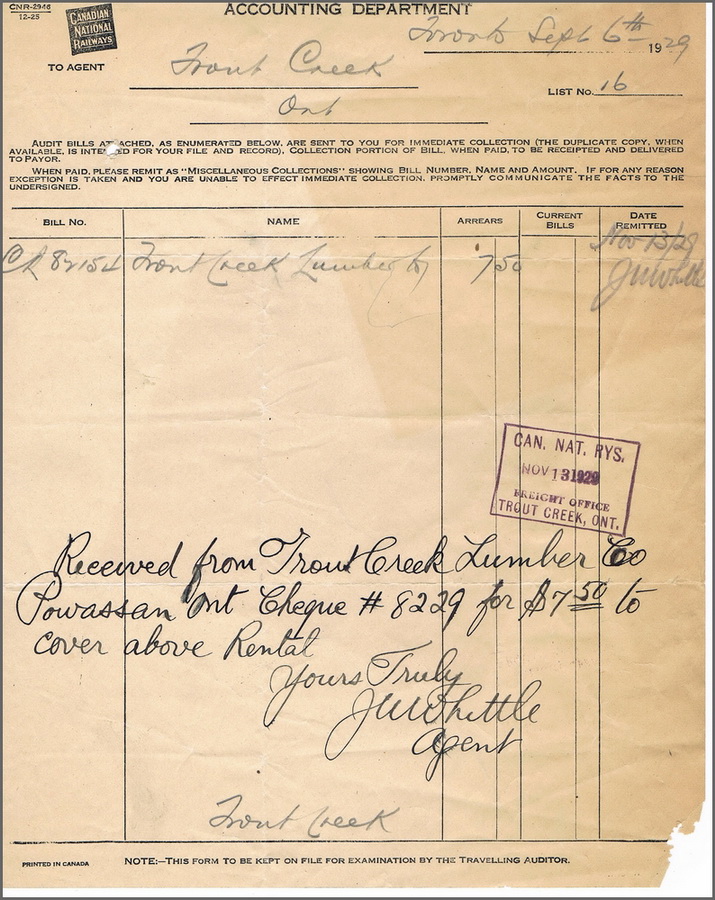 CNR-2946
12-25
CANADIAN
NATIONAL
RAILWAYS
ACCOUNTING DEPARTMENT
Toronto Sept 6th 1929
TO AGENT
Trout Creek
LIST No. 16
Ont
AUDIT BILLS ATTACHED, AS ENUMERATED BELOW, ARE SENT TO YOU FOR IMMEDIATE COLLECTION (THE DUPLICATE COPY, WHEN
AVAILABLE, IS INTENDED FOR YOUR FILE AND RECORD), COLLECTION PORTION OF BILL, WHEN PAID, TO BE RECEIPTED AND DELIVERED
TO PAYOR.
WHEN PAID, PLEASE REMIT AS "MISCELLANEOUS COLLECTIONS" SHOWING BILL NUMBER, NAME AND AMOUNT. IF FOR ANY REASON
EXCEPTION IS TAKEN AND YOU ARE UNABLE TO EFFECT IMMEDIATE COLLECTION, PROMPTLY COMMUNICATE THE FACTS TO THE
UNDERSIGNED.
BILL NO. NAME ARREARS CURRENT BILLS DATE REMITTED
Nov 13/29
82154 Trout Creek Lumber Co 7 50
JW Whittle
CAN. NAT. RYS.
NOV 13 1929
FREIGHT OFFICE
TROUT CREEK, ONT.
Received from Trout Creek Lumber Co
Powassan Ont Cheque # 8229 for $7 50 to
cover above Rental
Yours Truly
JW Whittle
Agent
Trout Creek
PRINTED IN CANADA
NOTE:—THIS FORM TO BE KEPT ON FILE FOR EXAMINATION BY THE TRAVELLING AUDITOR.